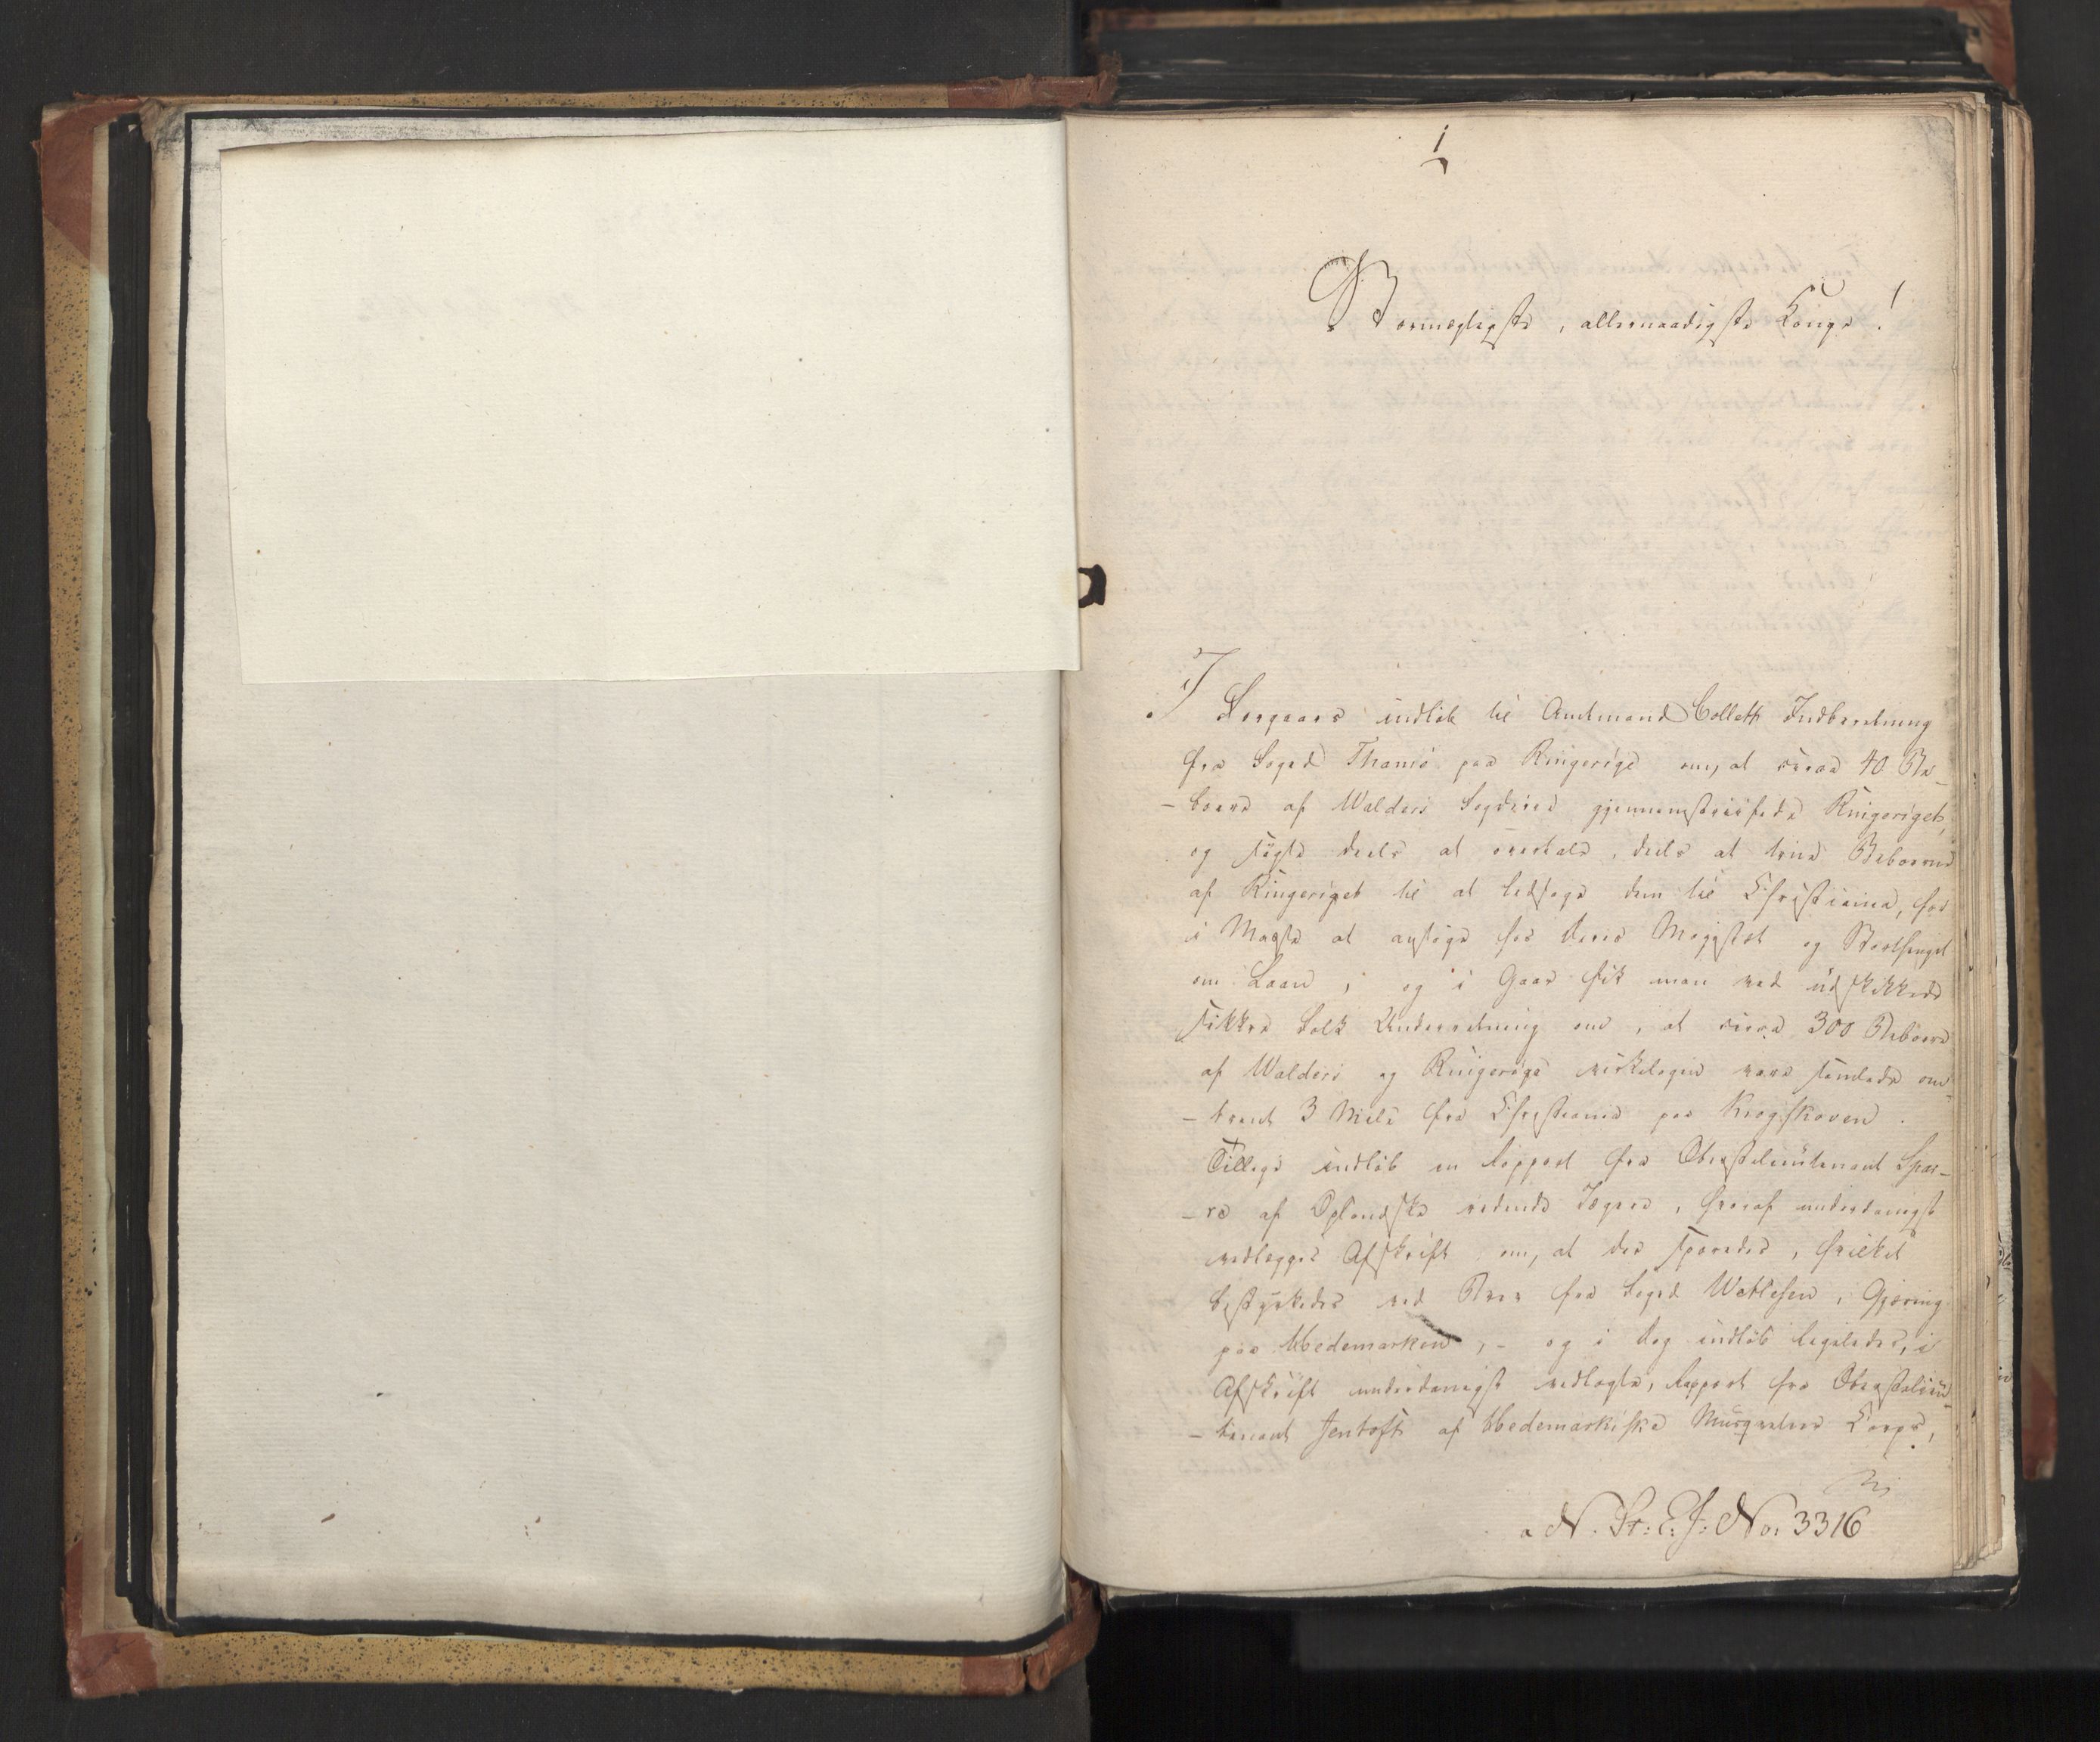 1
Stormægtigste, allernaadigste Konge!
I Forgaars indløb til Amtmand Collett Indberetning
fra Foged Thams paa Ringerige om, at circa 40 Be-
-boere af Walders Fogderie gjennemstreifede Ringeriget,
og søgte deels at overtale, deels at true Beboerne
af Ringeriget til at ledsage dem til Christiania, for
i Masse at ansøge hos Deres Majestæt og Storthinget
om Laan; og i Gaar fik man ved udskikkede
sikkre Folk Underretning om, at circa 300 Beboere
af Walders og Ringerige virkeligen vare samlede om-
-trent 3 Mile fra Christiania paa Krogskoven.
Tillige indløb en Rapport fra Oberstlieutenant Spar-
-re af Oplandske ridende Jægere, hvoraf underdanigst
vedlægges Afskrift om, at der sporedes, hvilket
bestyrkedes ved Brev fra Foged Wetlesen, Gjæring
paa Hedemarken, - og i Dag indløb ligeledes, i
Afskrift underdanigst vedlagte, Rapport fra Oberstlieu-
-tenant Jentoft af Hedemarkiske Musqueteer Corps,
N. St: E. J: No: 3316